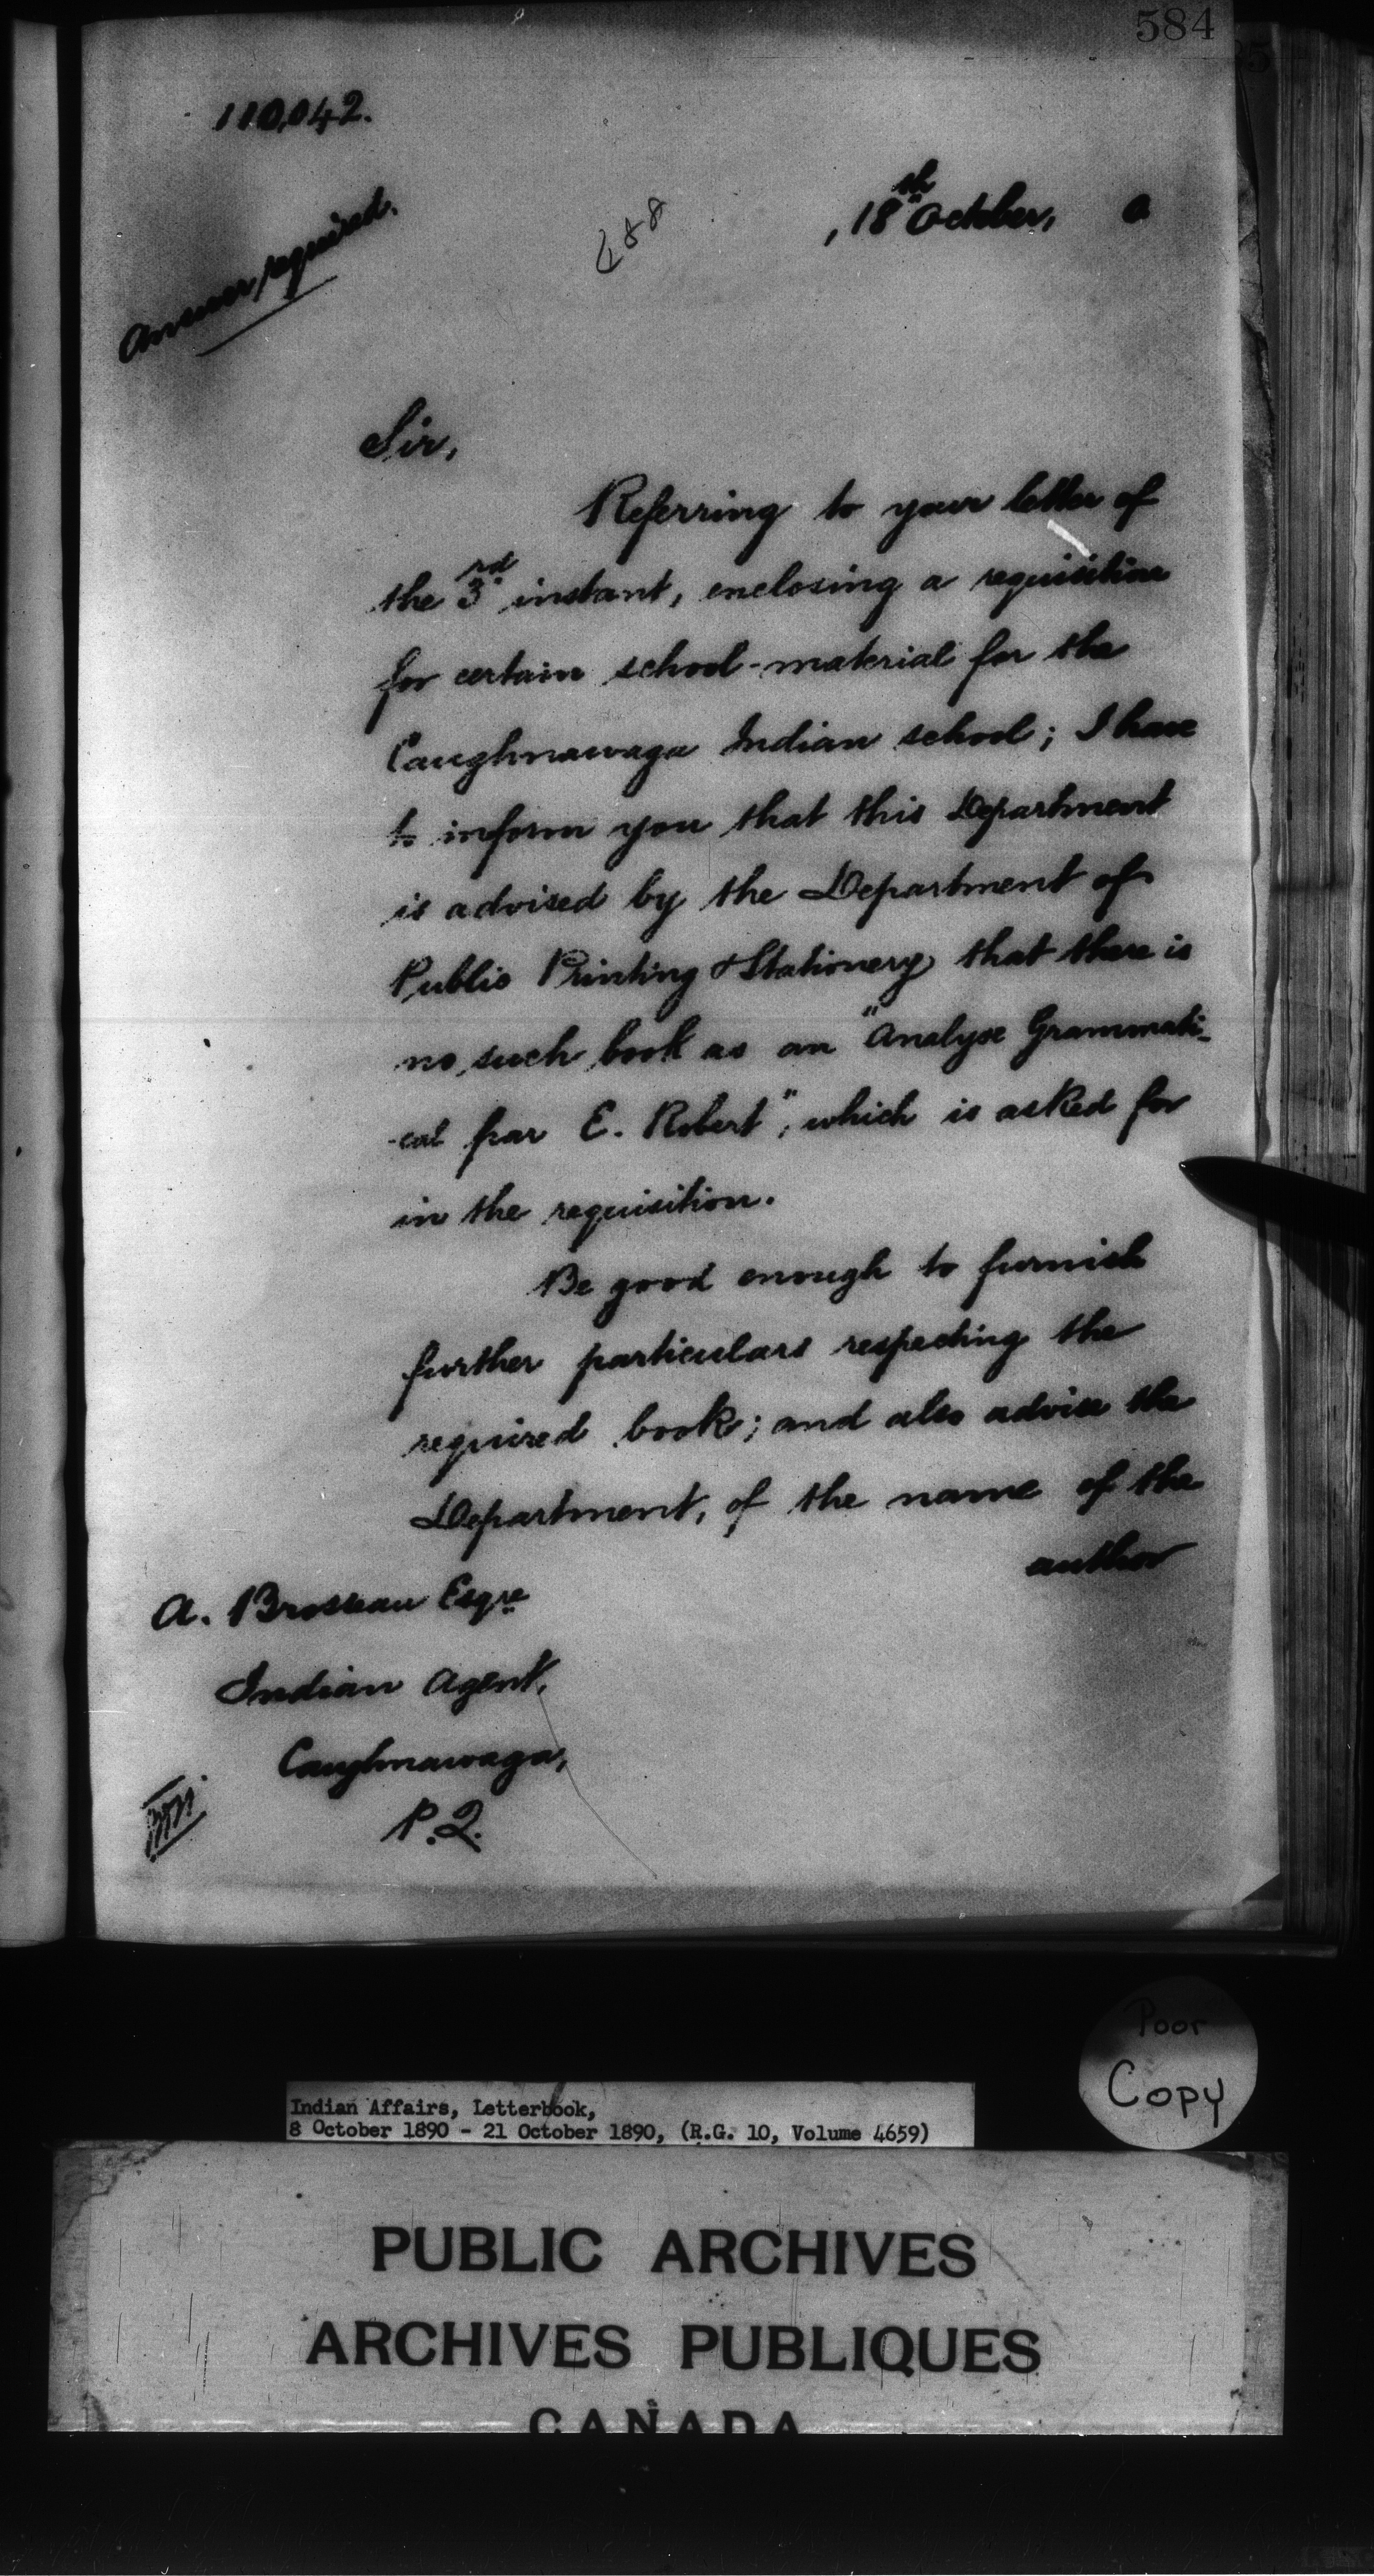 584
110,042.
Answer required.
, 18th October, 0
Sir,
Referring to your letter of
the 3rd instant, enclosing a requisition
for certain school-material for the
Caughnawaga Indian school; I have
to inform you that this Department
is advised by the Department of
Public Printing & Stationery that there is
no such book as an "Analyse Grammati-
-cal par E. Robert", which is asked for
in the requisition.
Be good enough to furnish
further particulars respecting the
required book; and also advise the
Department, of the name of the
author
A. Brosseau Esqre
Indian Agent,
Caughnawaga,
P.Q.
Poor
Copy
Indian Affairs, Letterbook,
8 October 1890 - 21 October 1890, (R.G. 10, Volume 4659)
PUBLIC ARCHIVES
ARCHIVES PUBLIQUES
CANADA